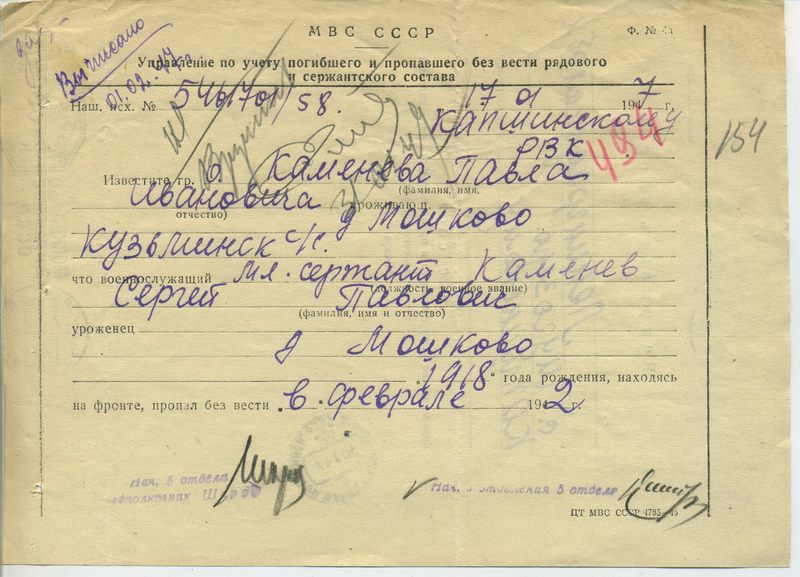 МВС СССР
Ф. №
Выписано
01.02.47г.
Управление по учету погибшего и пропавшего без вести рядового
и сержантского состава
Наш. исх. № 546170/58. 17 01 1947 г.
Капшинскому
РВК
494
154
Известите гр. Каменева Павла
(фамилия, имя,
Ивановича прожив.
отчество)
д Мошково
Кузьминск с/с.
что военнослужащий мл. сержант Каменев
(должность, военное звание)
Сергей Павлович
(фамилия, имя и отчество)
уроженец
д Мошково
1918 года рождения, находясь
на фронте, пропал без вести в феврале 1942 г.
Нач. 6 отдела
Нач. отделения 6 отдела
ЦТ МВС СССР 4785—46